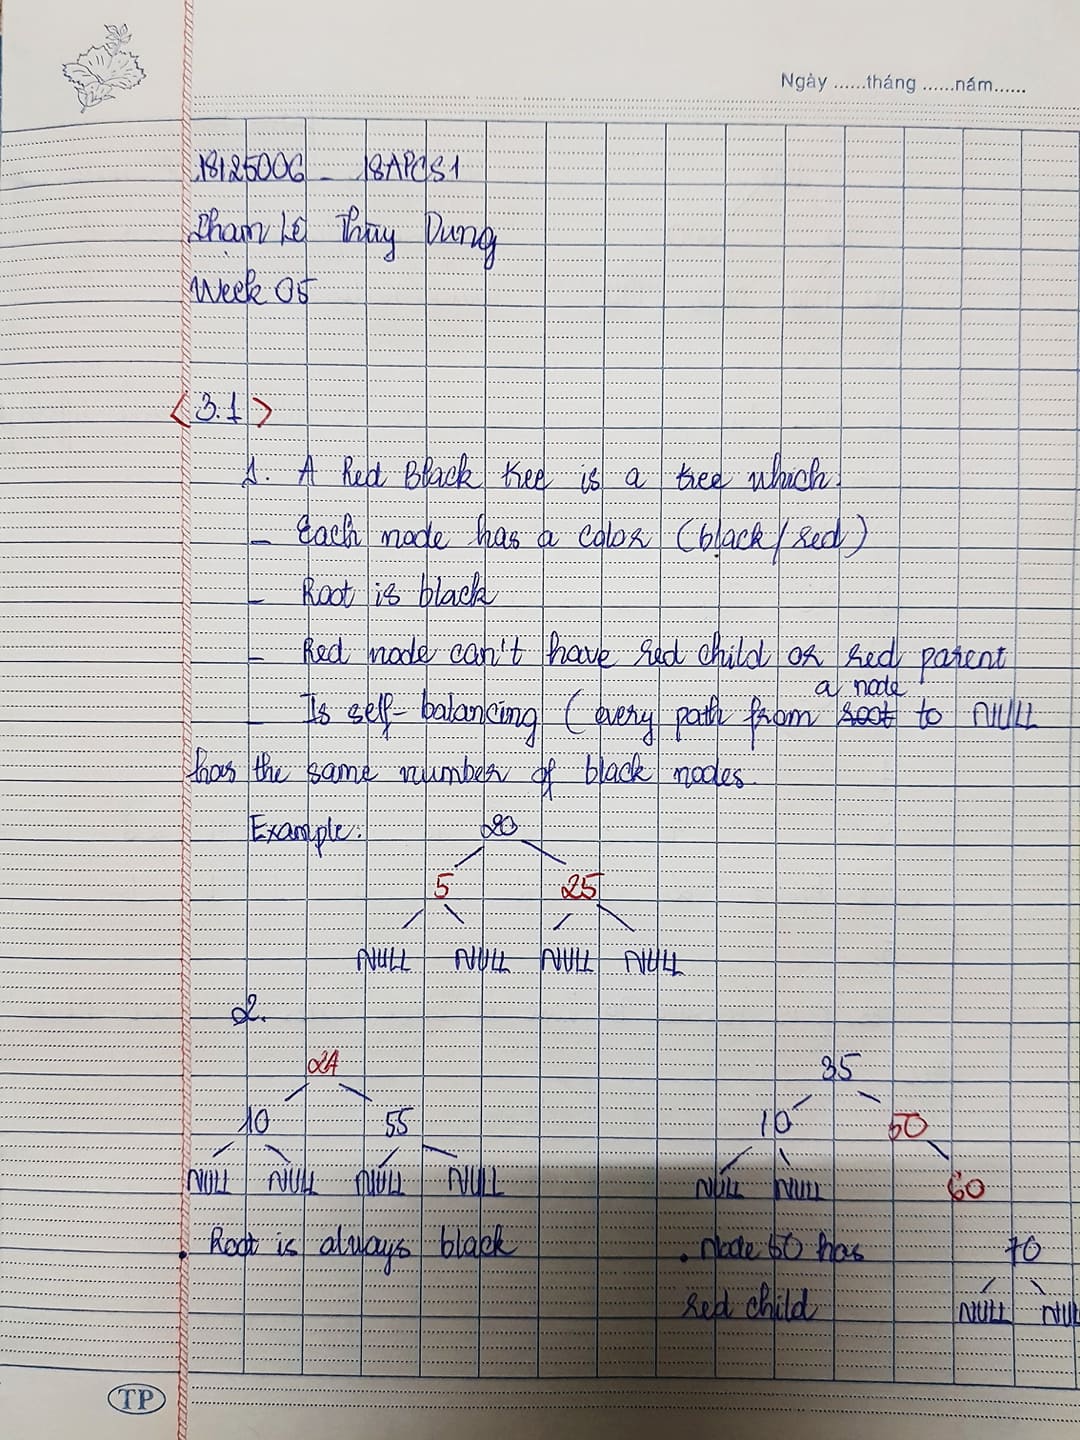 Ngày ......tháng ......năm......
18125006 - 18APCS1
Phạm Lê Thùy Dung
Week 05
<3.1>
1. A Red Black tree is a tree which:
- Each node has a color (black/red)
- Root is black
- Red node can't have red child or red parent
a node
- Is self-balancing (every path from root to NULL
has the same number of black nodes.
Example: 20
5 25
NULL NULL NULL NULL
2.
24 35
10 55 10 50
NULL NULL NULL NULL NULL NULL 60
. Root is always black . Node 50 has 70
red child NULL NUL
TP